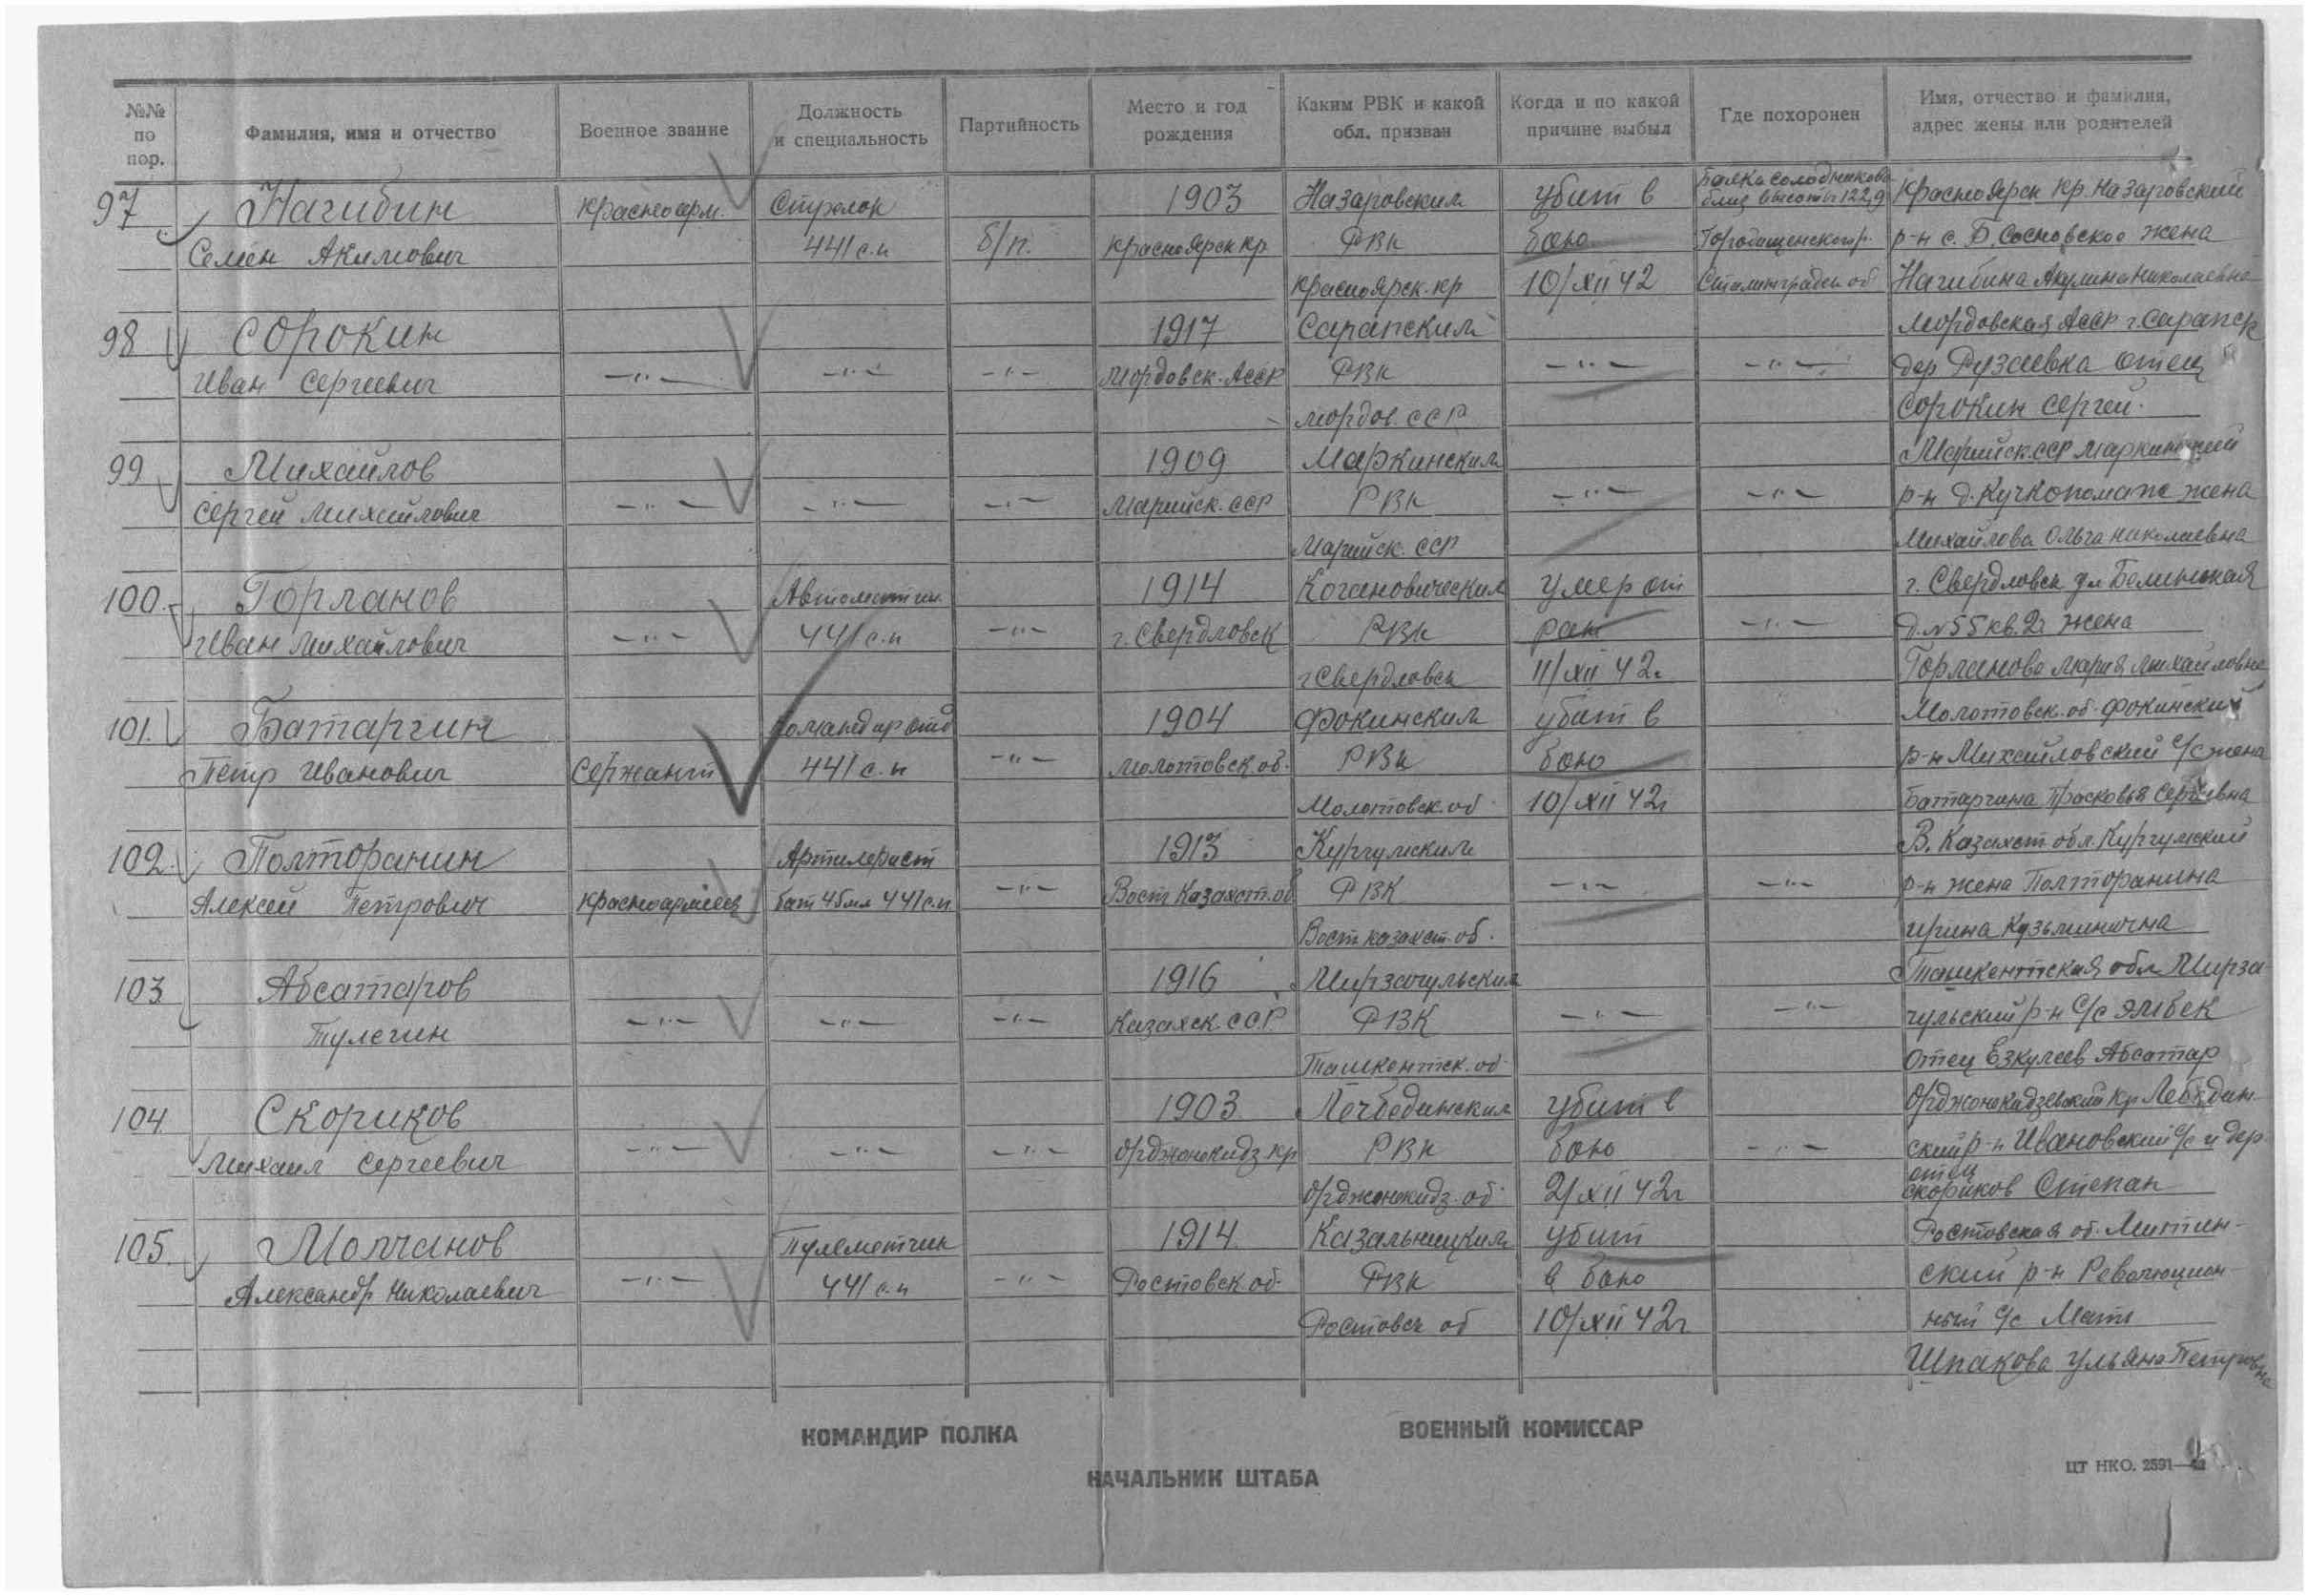 №№ по пор.
Фамилия, имя и отчество
Военное звание
Должность и специальность
Партийность
Место и год рождения
Каким РВК и какой обл. призван
Когда и по какой причине выбыл
Где похоронен
Имя, отчество и фамилия, адрес жены или родителей
97 Нагибин Красноарм. Стрелок 1903 Назаровским убит в Балка Солодникова близ высоты 122,9 Красноярск кр. Назаровский
Семён Акимович 441 с.п б/п. Красноярск кр РВК бою Городищенског р. р-н с. Б. Сосновское жена
Красноярск. кр 10/XII 42 Сталинградск об Нагибина Акулина Николаевна
98 Сорокин 1917 Саранским Мордовская АССР г. Саранск
Иван Сергеевич —"— —"— —"— Мордовск. АССР РВК —"— —"— дер Рузаевка отец
Мордов. ССР Сорокин Сергей.
99 Михайлов 1909 Маркинским Марийск. ССР Маркинский
Сергей Михайлович —"— —"— —"— Марийск. ССР РВК —"— —"— р-н д. жена
Марийск. ССР Михайлова Ольга Николаевна
100. Горланов Автоматчик 1914 Когановическим умер от г. Свердловск ул Белинская
Иван Михайлович —"— 441 с.п —"— г. Свердловск РВК ран —"— д. № 55 кв. 2 жена
г Свердловск 11/XII 42г Горланова Мария Михайловна
101. Батаргин командир отд 1904 Фокинским убит в Молотовск. об. Фокинский
Петр Иванович Сержант 441 с.п —"— Молотовск. об. РВК бою р-н Михайловский с/с жена
Молотовск. об 10/XII 42г Батаргина Прасковья Сергевна
102. Полторанин Артилерист 1913 Кургумским В. Казахст. обл. Кургумский
Алексей Петрович Красноармеец бат 45мм 441 с.п —"— Вост Казахст. об РВК —"— —"— р-н жена Полторанина
Вост казахст. об. Ирина Кузьминична
103 Абсатаров 1916 Мирзачульским Ташкентская обл Мирза-
Тулегин —"— —"— —"— Казахск. ССР РВК —"— —"— чульский р-н с/с Элибек
Ташкентск. об. отец Езкулеев Абсатар
104. Скориков 1903 Лебединским убит в Орджоникидзевский кр Лебедин.
Михаил Сергеевич —"— —"— —"— Орджоникидз. кр РВК бою —"— ский р-н Ивановский с/с и дер.
Орджоникидз. об 2/XII 42г отец Скориков Степан
105. Молчанов Пулеметчик 1914 Казальницким убит Ростовская об. Митин-
Александр Николаевич —"— 441 с.п —"— Ростовск об. РВК в бою ский р-н Революцион-
Ростовск об 10/XII 42г ный с/с Мать
Шпакова Ульяна Петровна
КОМАНДИР ПОЛКА
ВОЕННЫЙ КОМИССАР
НАЧАЛЬНИК ШТАБА
ЦТ НКО. 2591—